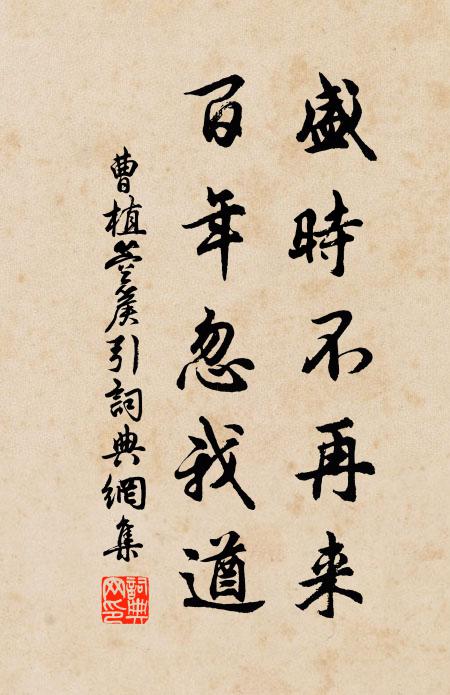 盛時不再来
百年忽我遒
曹植箜篌引詞典網集
詞典
网印